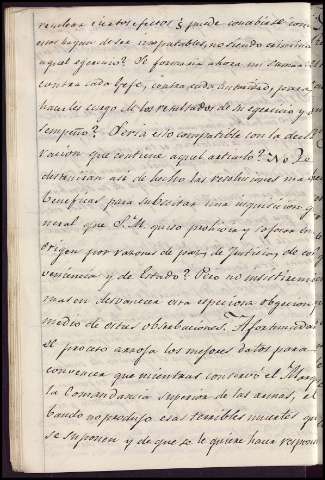 resultar ciertos efectos q puede concebirse con
nos hayan de ser imputables, no siendo
aquel egercicio? Se formaria ahora mi sumar
contra cada Gefe, contra cada autoridad, para
hacerles cargo de los resultados de su egercicio y
sempeño? Seria esto compatible con la decla
racion que contiene aquel articulo? No Se
destruirian asi de hecho las resoluciones ma
beneficas para subsitar una inquisicion ge
neral que S. M. quiso prohivir y sofocar en
origen por razones de paz, de Justicia, de co
veniencia y de Estado? Pero no insistiremos
mas en desvanecer esta especiosa obgecion
medio de estas obserbaciones. Afortunadam
el proceso arroja los mejores datos para
convencer que mientras conservó el Marq
la Comandancia Superior de las armas, el
bando no produjo esas terribles muertes que
se suponen y de que se le quiere hacer respons